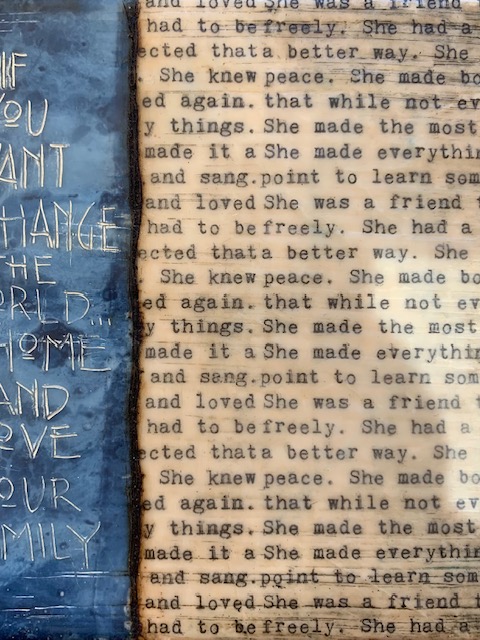 IF
YOU
ANT
HANGE
THE
RLD...
HOME
AND
OVE
OUR
MILY
and loved She was a friend t
had to be freely. She had a
ected that a better way. She
. She knew peace. She made bo
ed again. that while not ev
y things. She made the most
made it a She made everythin
and sang. point to learn som
and loved She was a friend t
had to be freely. She had a
ected that a better way. She
. She knew peace. She made bo
ed again. that while not ev
y things. She made the most
made it a She made everythin
and sang. point to learn som
and loved She was a friend t
had to be freely. She had a
ected that a better way. She
. She knew peace. She made bo
ed again. that while not ev
y things. She made the most
made it a She made everythin
and sang. point to learn som
and loved She was a friend t
had to be freely. She had a